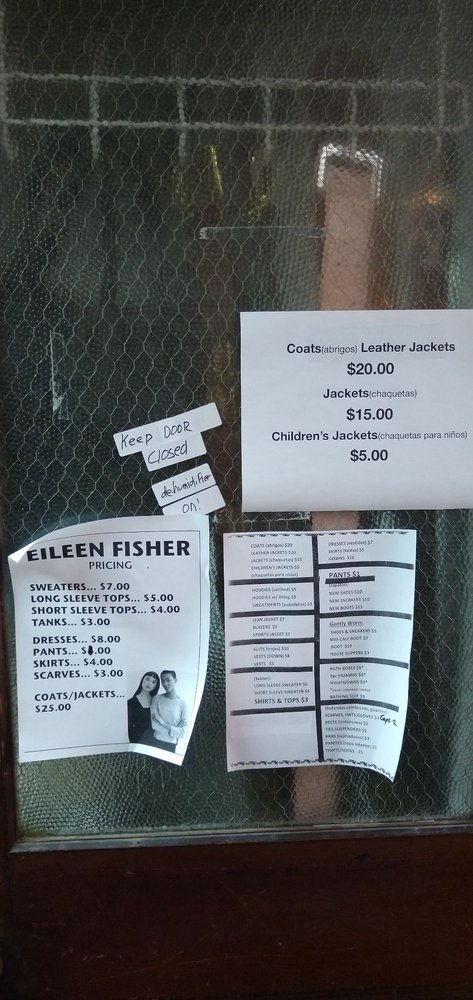 Coats(abrigos) Leather Jackets
$20.00
Jackets(chaquetas)
$15.00
Children's Jackets(chaquetas para niños)
$5.00
Keep DOOR
Closed
dehumidifier
ON!
EILEEN FISHER
PRICING
SWEATERS... $7.00
LONG SLEEVE TOPS... $5.00
SHORT SLEEVE TOPS... $4.00
TANKS... $3.00
DRESSES... $8.00
PANTS... $ .00
SKIRTS... $4.00
SCARVES... $3.00
COATS/JACKETS...
$25.00
COATS (abrigos) $20
LEATHER JACKETS $20
JACKETS (chaquetas) $15
CHILDREN'S JACKETS $5
(chaquetas para ninos)
HOODIES (unlined) $5
HOODIES w/ lining $8
SWEATSHIRTS (sudaderas)
JEAN JACKET $7
BLAZERS $7
SPORTS JACKET $7
SUITS (trajes) $10
VESTS (DOWN) $8
VESTS $5
LONG SLEEVE SWEATER $6
SHORT SLEEVE SWEATER $4
SHIRTS & TOPS $3
DRESSES (vestidos) $7
SKIRTS (faldas) $3
GOWNS $10
PANTS $1
NEW SHOES $10
NEW SNEAKERS $10
NEW BOOTS $15
Gently Worn:
SHOES & SNEAKERS $5
MID-CALF BOOT $7
BOOT $10
HOUSE SLIPPERS $3
BATH ROBES $5*
2pc PAJAMAS $6*
NIGHTGOWNS $3*
BATHING SUIT
SCARVES, HATS, GLOVES $3
BELTS (cinturones) $2
TIES, SUSPENDERS $2
BRAS (sujetadores) $3
PANTIES (ropa interior) $1
TIGHTS/SOCKS .75